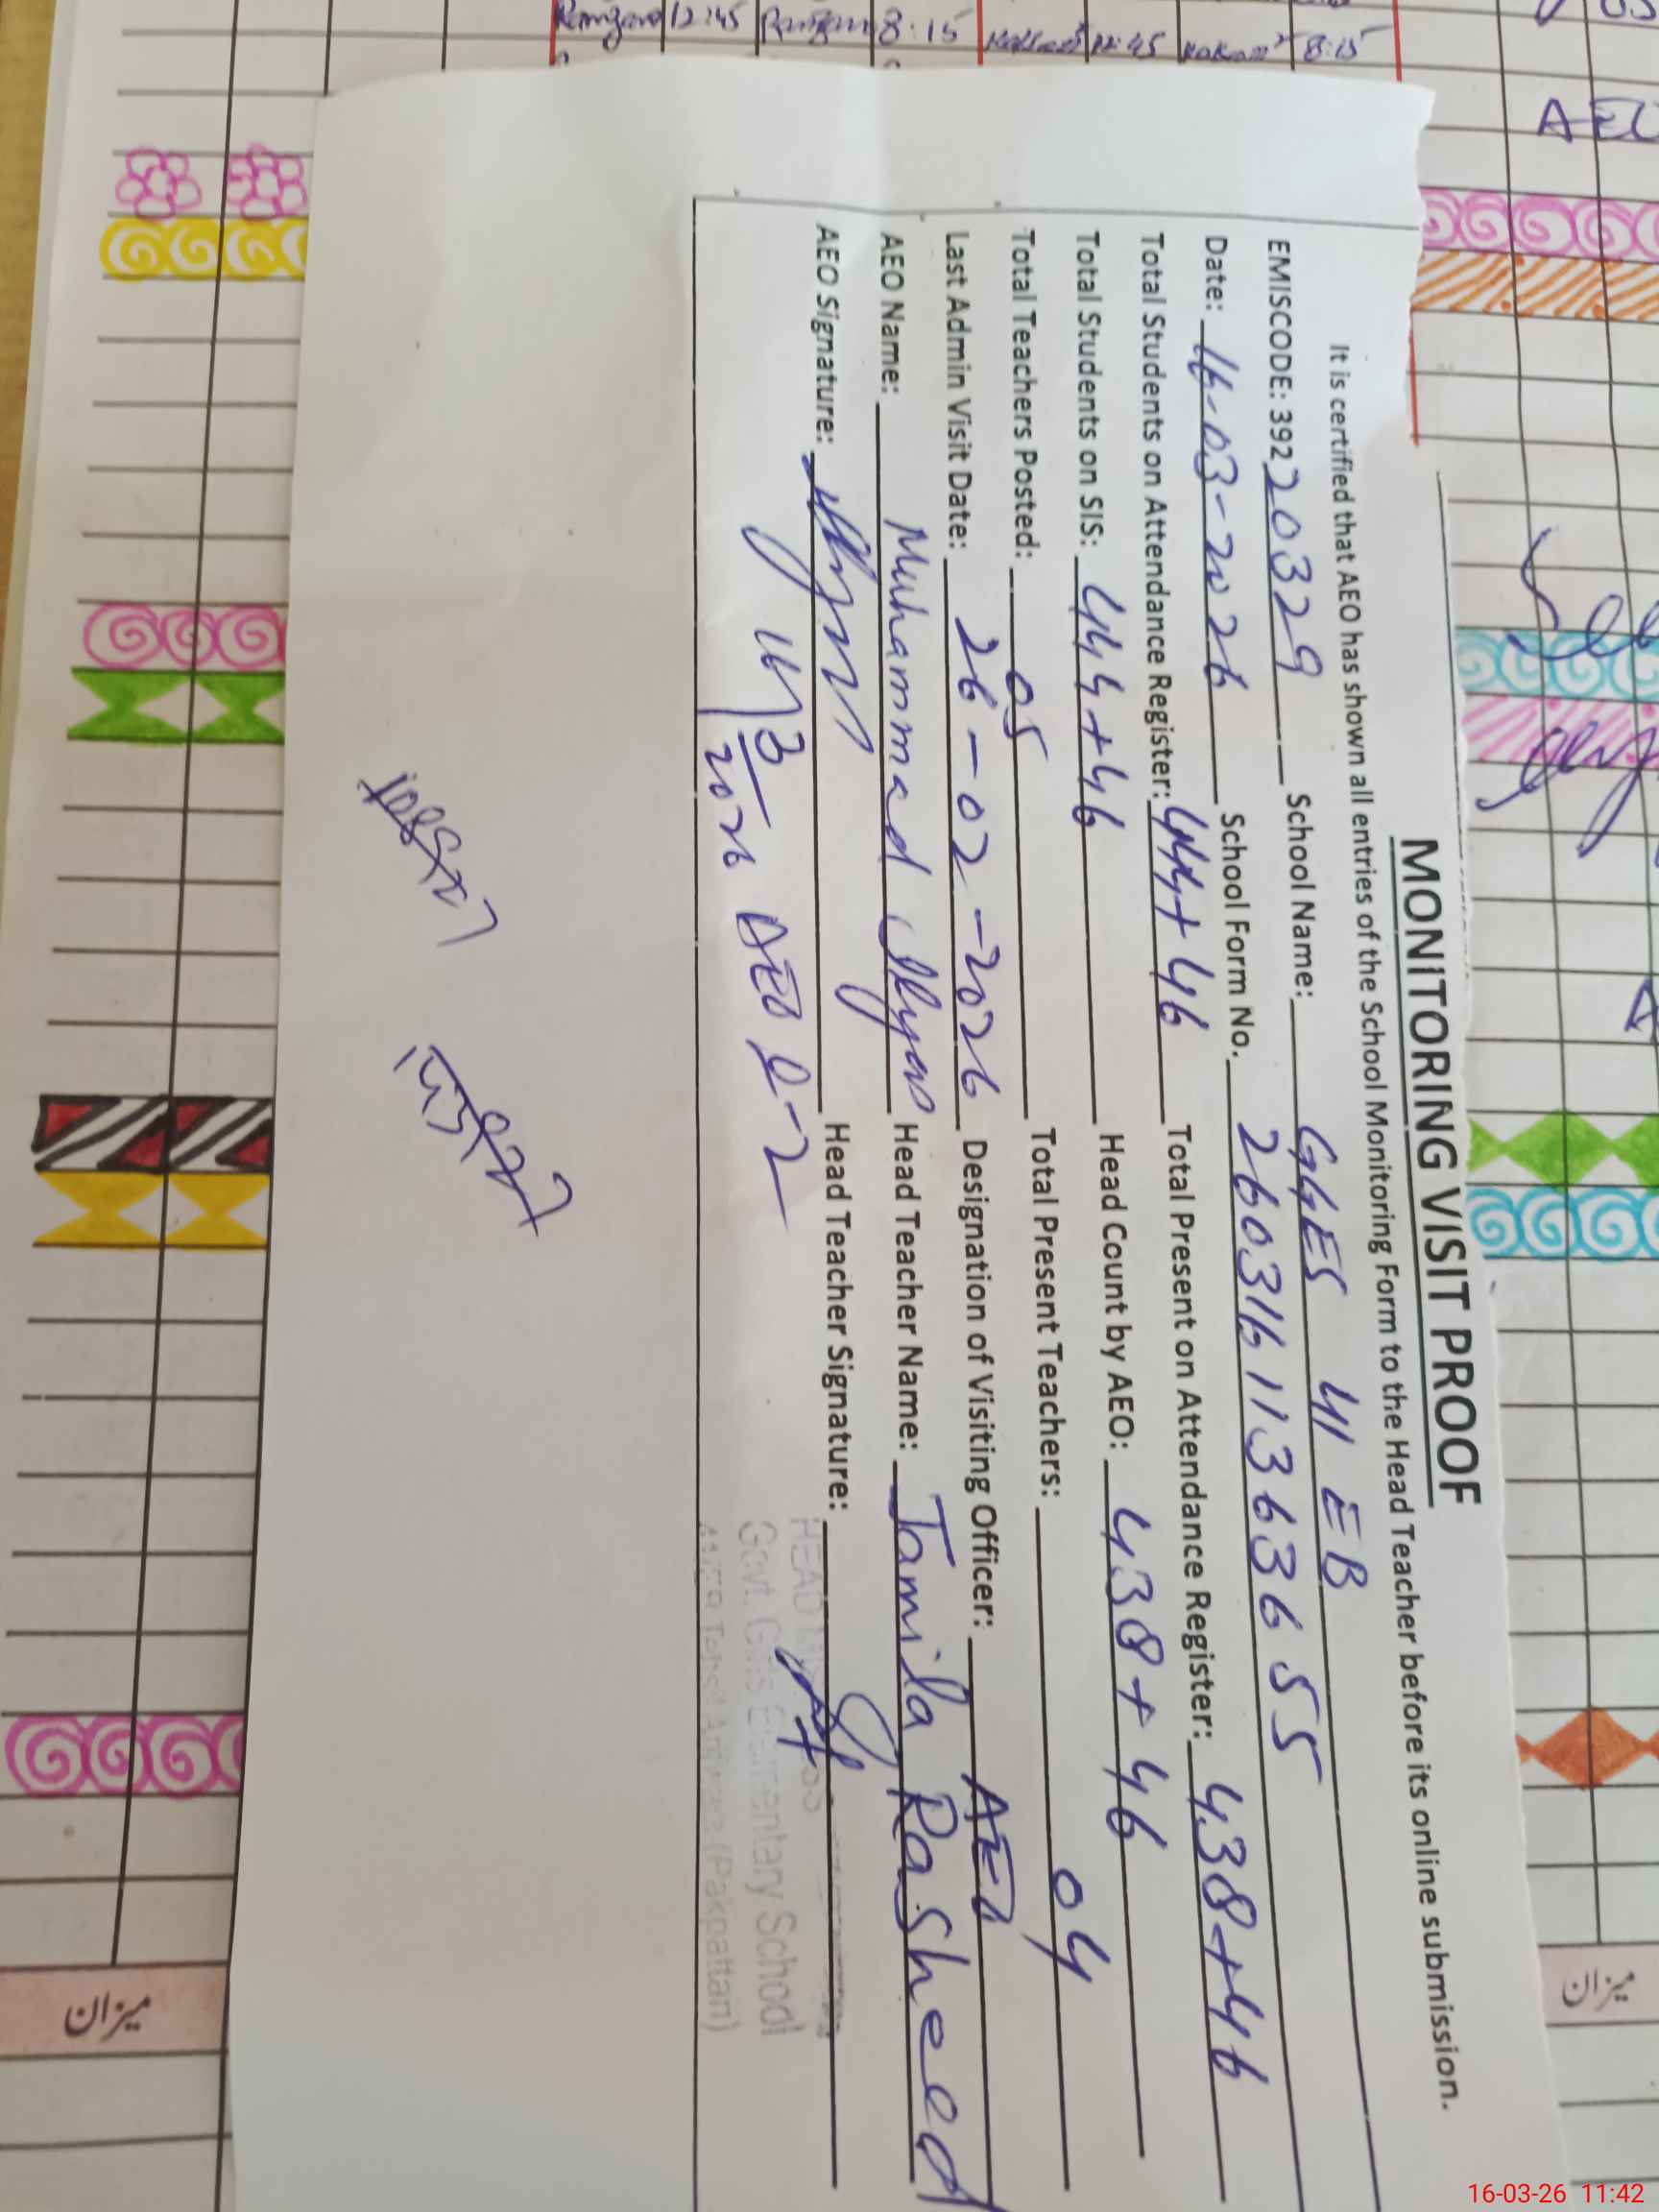 Ramzan 12:45 Ramzan 8:15 12:45 8:15
MONITORING VISIT PROOF
It is certified that AEO has shown all entries of the School Monitoring Form to the Head Teacher before its online submission.
EMISCODE: 39220329 School Name: GGES 41 EB
Date: 16-03-2026 School Form No. 2603161136 36 55
Total Students on Attendance Register: 444+46 Total Present on Attendance Register: 438+46
Total Students on SIS: 444+46 Head Count by AEO: 438+46
Total Teachers Posted: 05 Total Present Teachers: 04
Last Admin Visit Date: 26-02-2026 Designation of Visiting Officer: AEO
AEO Name: Muhammad Ilyas Head Teacher Name: Jamila Rasheed
AEO Signature: Head Teacher Signature:
16/3/2026 AEO
Govt. Girls Elementary School
(Pakpattan)
میزان
میزان
16-03-26 11:42